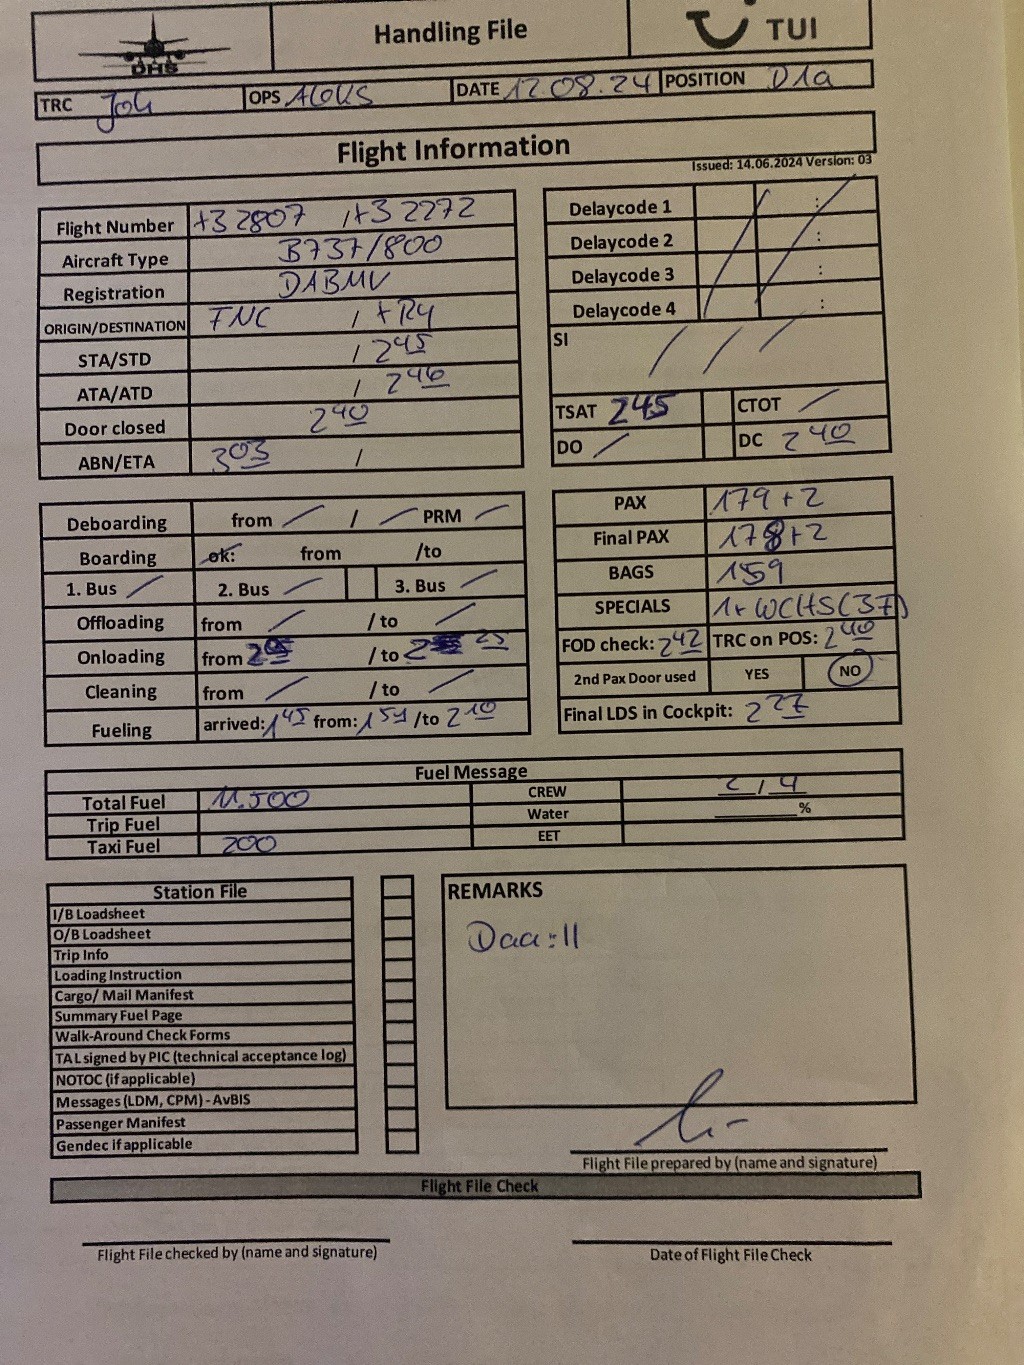 DHS
Handling File
TUI
TRC Joh OPS Aleks DATE 12.08.24 POSITION D1a
Flight Information
Issued: 14.06.2024 Version: 03
Flight Number X3 2807 / X3 2272
Aircraft Type B737/800
Registration DABMV
ORIGIN/DESTINATION FNC /
STA/STD / 245
ATA/ATD / 246
Door closed 240
ABN/ETA 303 /
Delaycode 1 :
Delaycode 2 :
Delaycode 3 :
Delaycode 4 :
SI / / /
TSAT 245 CTOT /
DO / DC 240
Deboarding from / / / PRM /
Boarding ok: from /to
1. Bus / 2. Bus / 3. Bus /
Offloading from / / to /
Onloading from / to 2 25
Cleaning from / / to /
Fueling arrived: 145 from: 151 /to 210
PAX 179+2
Final PAX 178+2
BAGS 159
SPECIALS 1x WCHS(3F)
FOD check: 242 TRC on POS: 240
2nd Pax Door used YES NO
Final LDS in Cockpit: 227
Fuel Message
Total Fuel 11.500 CREW 2 / 4
Trip Fuel Water ______%
Taxi Fuel 200 EET
Station File
I/B Loadsheet
O/B Loadsheet
Trip Info
Loading Instruction
Cargo/ Mail Manifest
Summary Fuel Page
Walk-Around Check Forms
TAL signed by PIC (technical acceptance log)
NOTOC (if applicable)
Messages (LDM, CPM) - AvBIS
Passenger Manifest
Gendec if applicable
REMARKS
Daa:11
Flight File prepared by (name and signature)
Flight File Check
Flight File checked by (name and signature)
Date of Flight File Check